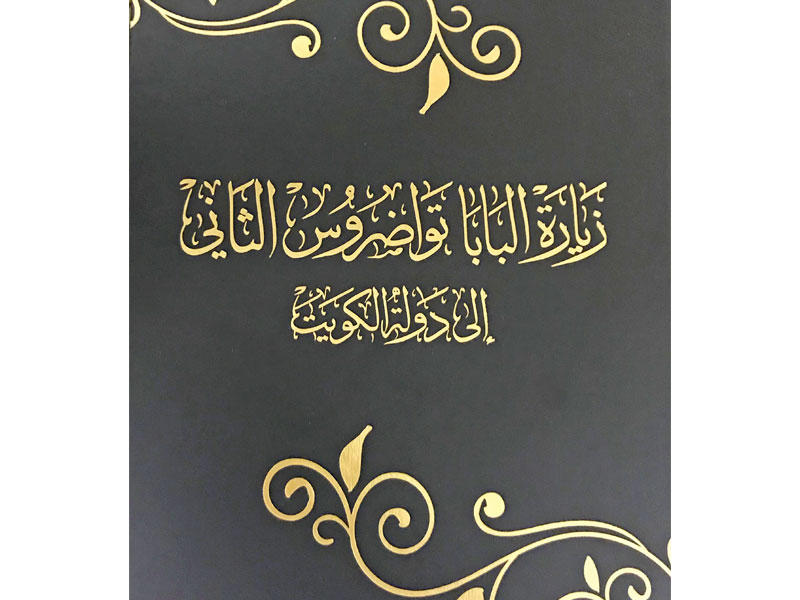 زيارة البابا تواضروس الثاني
إلى دولة الكويت